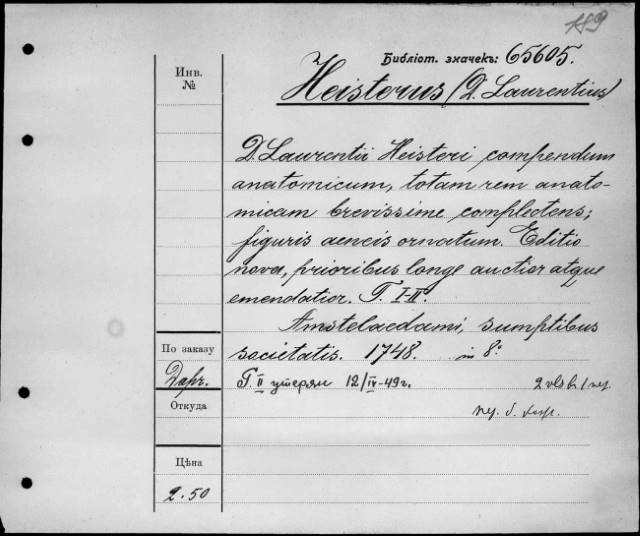 119
Библіот. значекъ: 65605.
Heisterus (D. Laurentius)
Инв.
№
D. Laurentii Heisteri compendium
anatomicum, totam rem anato-
micam brevissime complectens;
figuris aeneis ornatum. Editio
nova, prioribus longe auctior atque
emendatior. T. I-II.
Amstelaedami, sumptibus
societatis. 1748. in 8°
По заказу
Дар.
T. II утерян 12/IV-49г.
2 vls в 1 пер.
Откуда
Цѣна
2.50